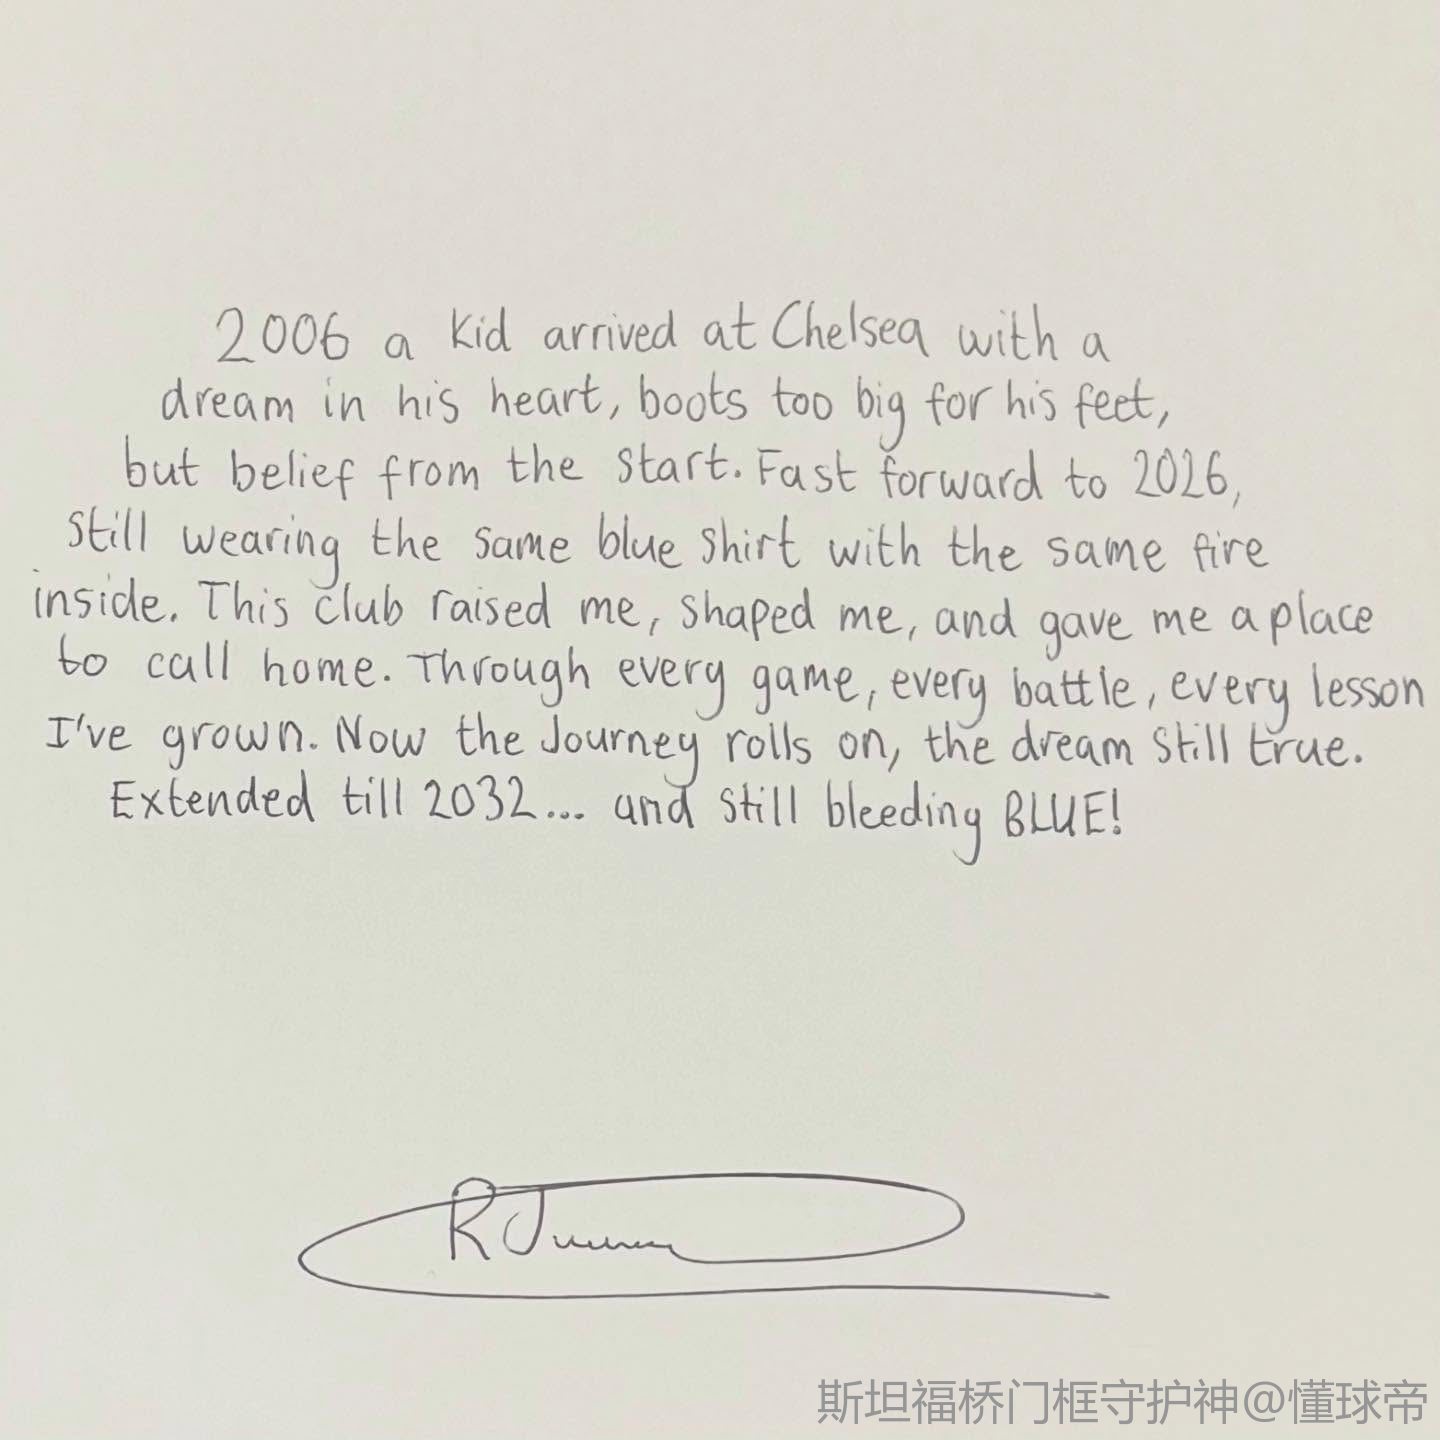 2006 a kid arrived at Chelsea with a
dream in his heart, boots too big for his feet,
but belief from the start. Fast forward to 2026,
still wearing the same blue shirt with the same fire
inside. This club raised me, shaped me, and gave me a place
to call home. Through every game, every battle, every lesson
I've grown. Now the Journey rolls on, the dream still true.
Extended till 2032... and still bleeding BLUE!
斯坦福桥门框守护神@懂球帝